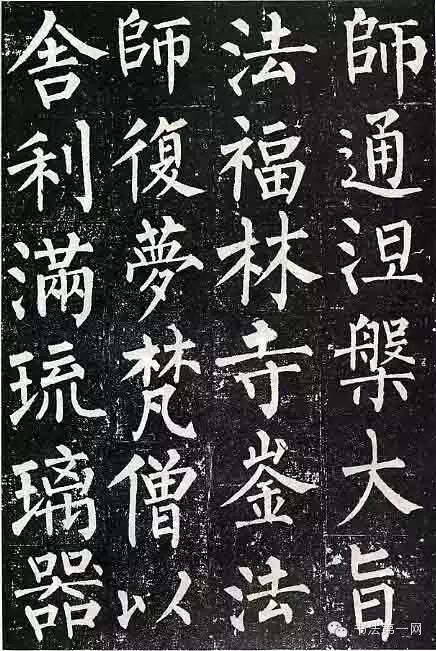 師通涅槃大旨
法福林寺崟法
師復夢梵僧以
舍利滿琉璃器
书法第一网